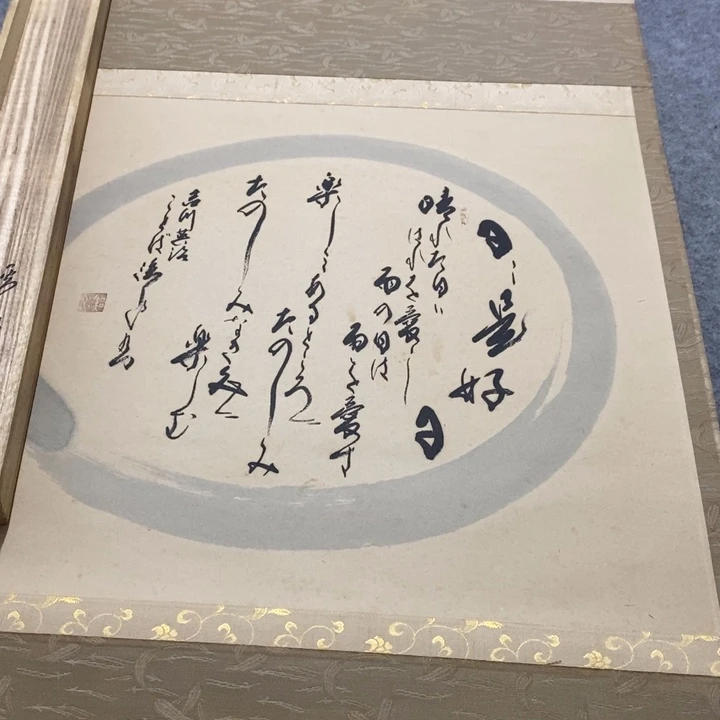 日々是好日
晴れた日は
はれを愛し
雨の日は
雨を愛す
楽しみあるところに
たのしみ
たのしみなき処に
楽しむ
吉川英治
ことば